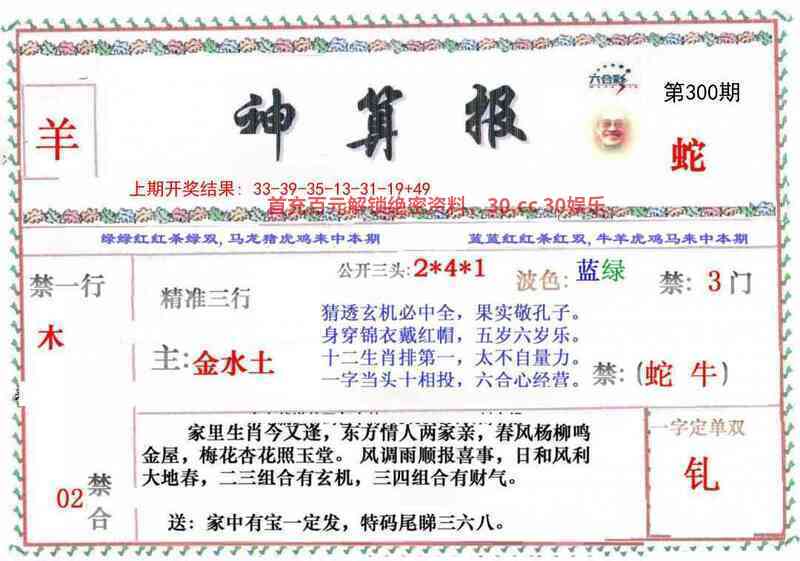 神算报
六合彩
第300期
羊
蛇
上期开奖结果：33-39-35-13-31-19+49
首充百元解锁绝密资料，30.cc 30娱乐
绿绿红红杀绿双,马龙猪虎鸡来中本期
蓝蓝红红杀红双,牛羊虎鸡马来中本期
禁一行
木
精准三行
主:金水土
公开三头:2*4*1
波色:蓝绿
禁:3门
猜透玄机必中全，果实敬孔子。
身穿锦衣戴红帽，五岁六岁乐。
十二生肖排第一，太不自量力。
一字当头十相投，六合心经营。
禁:(蛇 牛)
家里生肖今又逢，东方情人两家亲，春风杨柳鸣
金屋，梅花杏花照玉堂。 风调雨顺报喜事，日和风利
大地春，二三组合有玄机，三四组合有财气。
送：家中有宝一定发，特码尾睇三六八。
02禁合
一字定单双
钆